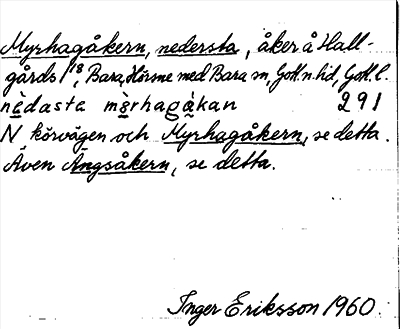 Myrhagåkern, nedersta, åker å Hall-
gårds 1¹⁸, Bara, Hörsne med Bara sn, Gotl. n. hd, Gotl. l.
nèdasta mörhagàkan 291
N körvägen och Myrhagåkern, se detta.
Även Ängsåkern, se detta.
Inger Eriksson 1960.